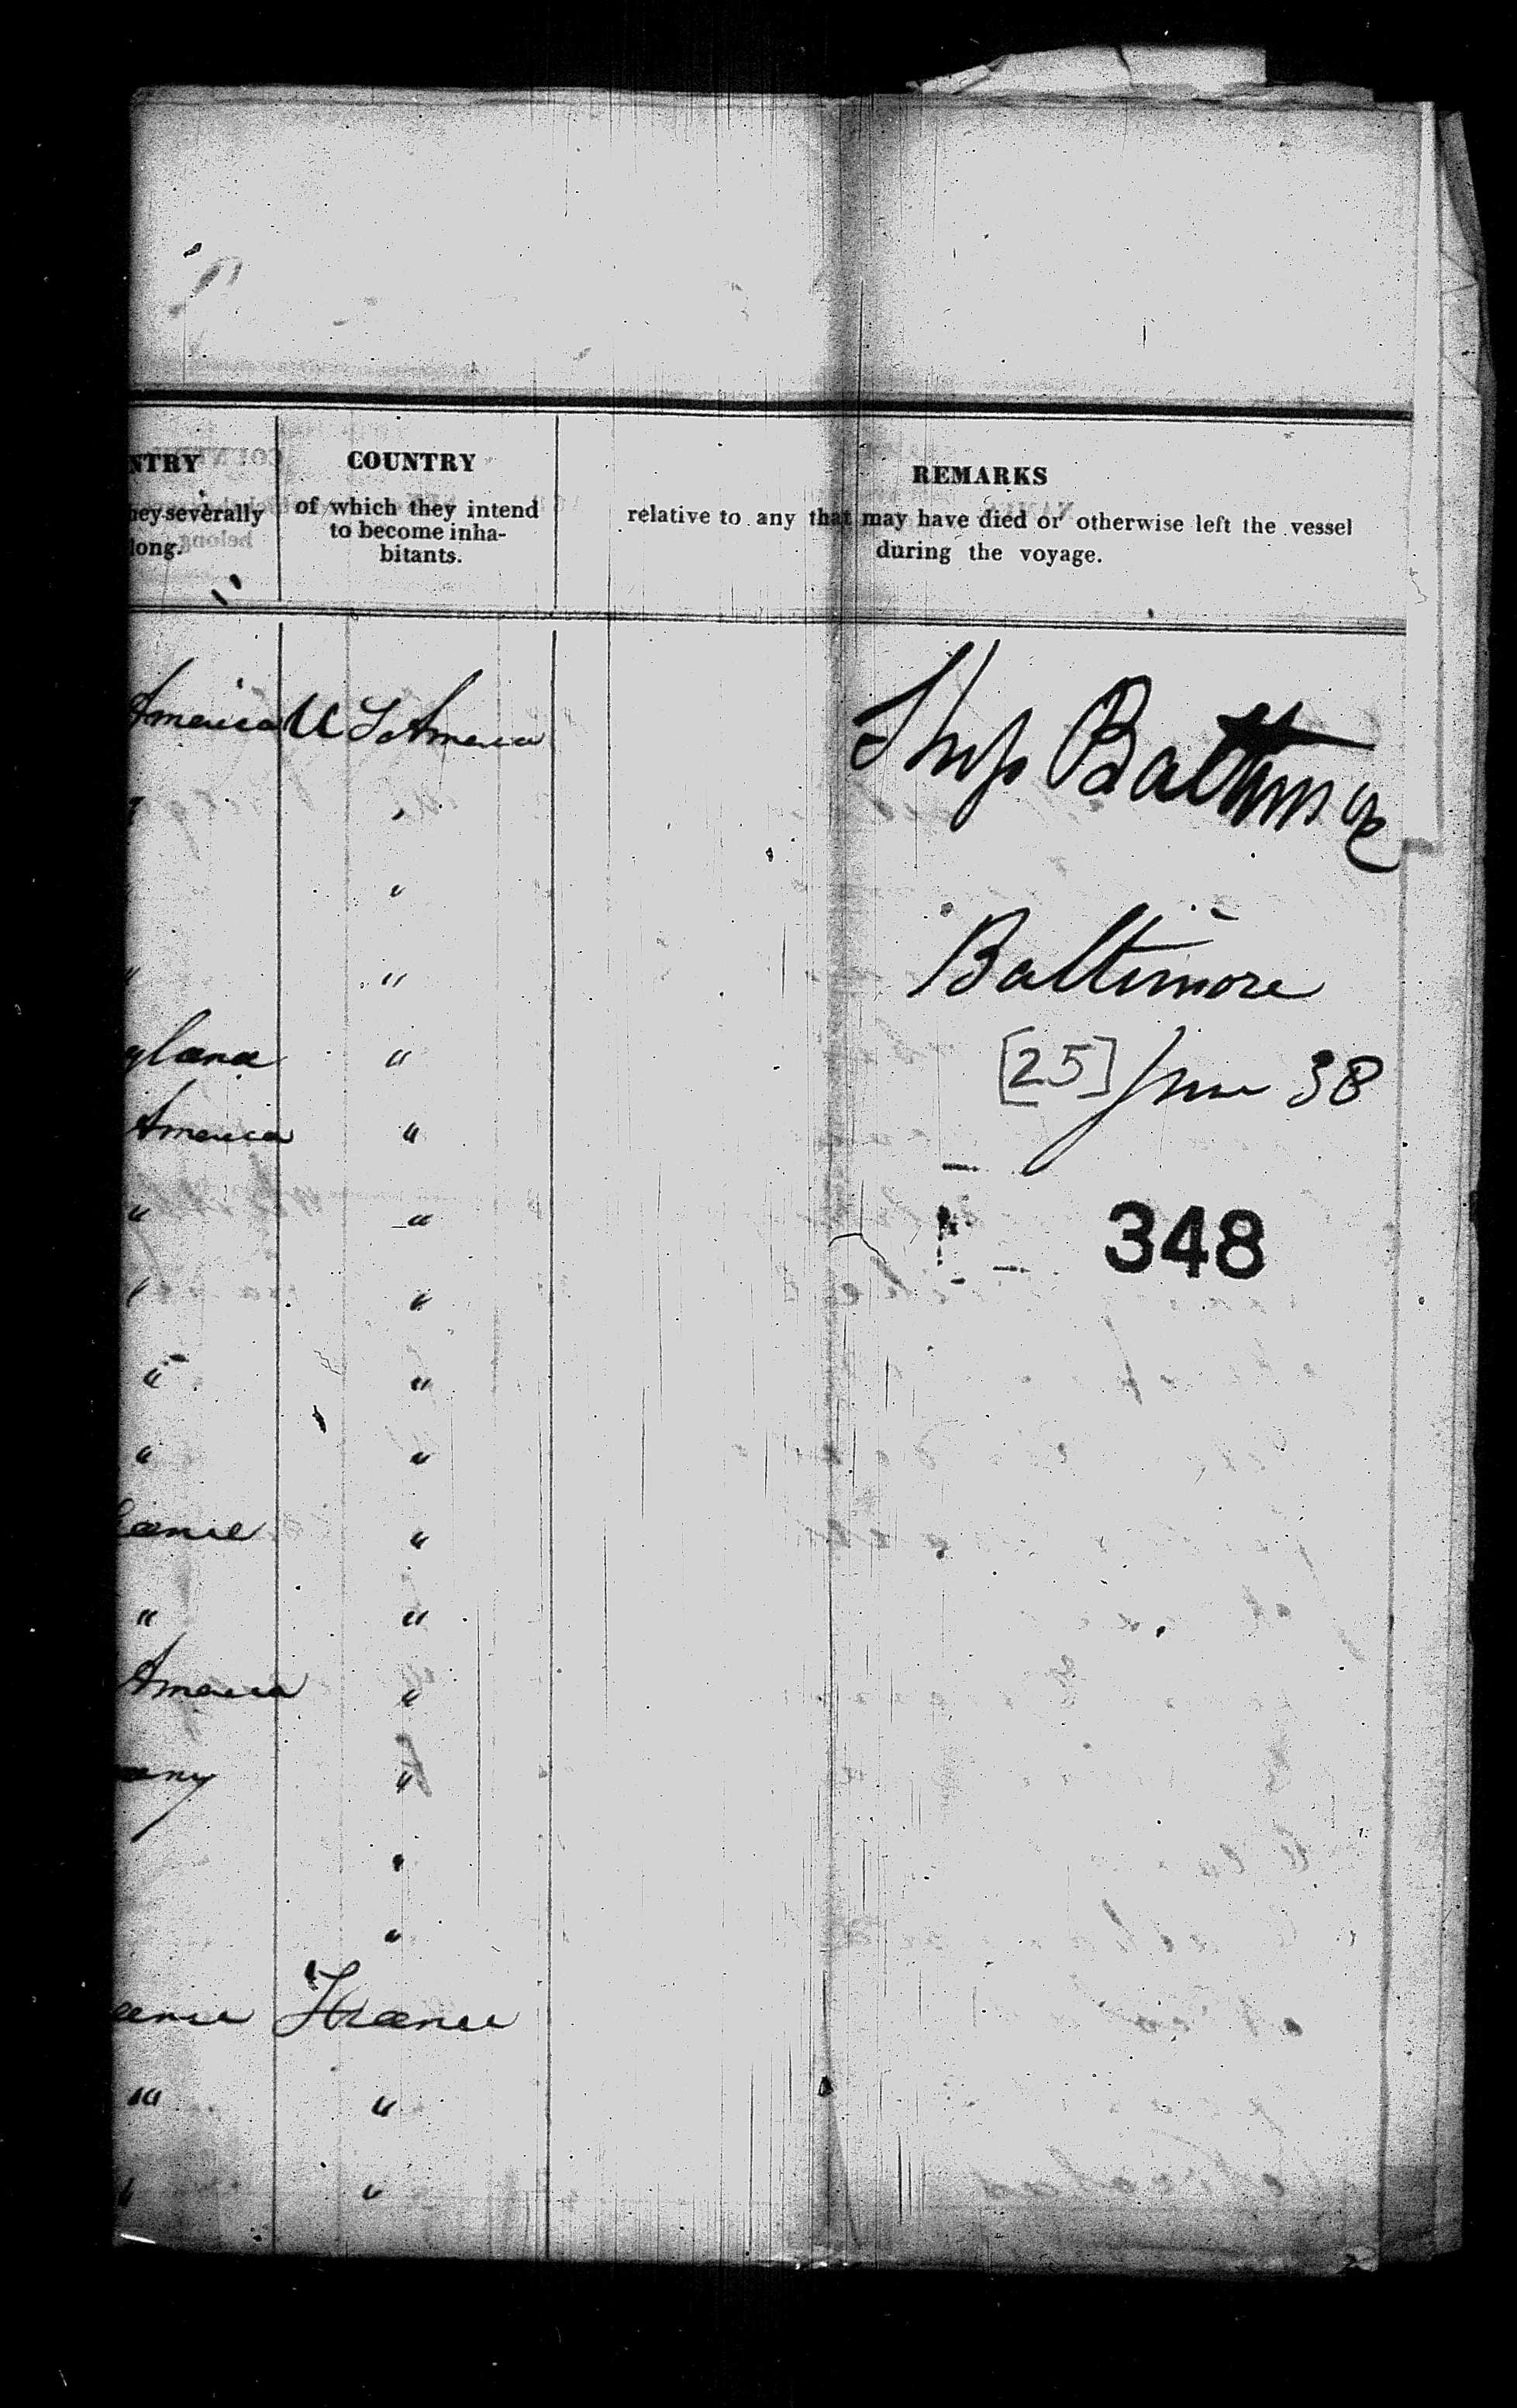 NTRY COUNTRY REMARKS
hey severally of which they intend relative to any that may have died or otherwise left the vessel
long. to become inha- during the voyage.
bitants.
America U S America Ship Baltimore
" "
" "
" " Baltimore
gland " [25] June 38
America "
" " 348
" "
" "
" "
rance "
" "
America "
any "
"
"
rance France
" "
" "